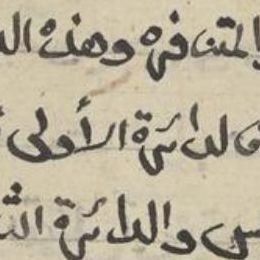 المتنافره وهذه
فالدائرة الأولى
س والدائرة الثا